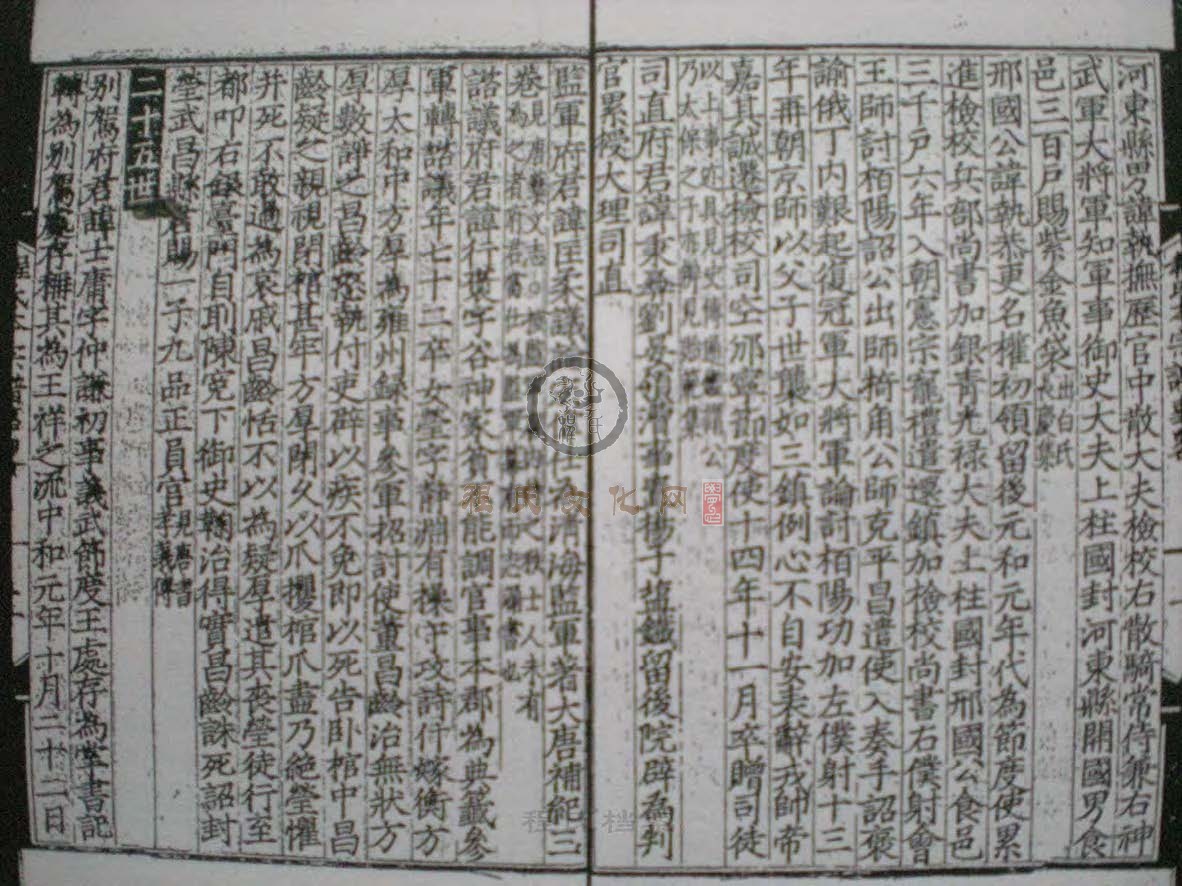 河東縣男諱執撫歷官中散大夫檢校右散騎常侍兼右神
武軍大將軍知軍事御史大夫上柱國封河東縣開國男食
邑三百戶賜紫金魚袋出白氏長慶集
邢國公諱執恭更名權領留後元和元年代為節度使累
進檢校兵部尚書加銀青光祿大夫上柱國封邢國公食邑
三千戶六年入朝憲宗寵禮遣還鎮加檢校尚書右僕射會
王師討栢陽詔公出師掎角公師克平昌遣使入奏手詔褒
諭俄丁內艱起復冠軍大將軍論討栢陽功加左僕射十三
年再朝京師以父子世襲如三鎮例心不自安表辭戎帥帝
嘉其誠遷檢校司空邠寧節度使十四年十一月卒贈司徒
以上事並具見史傳
乃太保之子亦見
司直府君諱秉 劉晏領漕事置揚子鹽鐵留後院辟為判
官累授大理司直
監軍府君諱匡柔議 仕為清海監軍著大唐補紀三
卷見唐藝文志 士人未有
為之者
諮議府君諱行襃字谷神家貧能調官事本郡為典籤參
軍轉諮議年七十二卒女瑩字靜淵有操守攻詩仟嫁衡方
厚太和中方厚為雍州録事參軍招討使董昌齡治無狀方
厚數諍之昌齡怒執付吏辟以疾不免即以死告卧棺中昌
齡疑之親視閉棺甚牢方厚閉久以爪攫棺爪盡乃絕瑩懼
并死不敢過為哀戚昌齡恬不以為疑厚遣其喪瑩徒行至
都叩右銀臺門自刵陳寃下御史鞫治得實昌齡誅死詔封
瑩武昌縣君賜一子九品正員官見唐書孝義傳
二十五世
別駕府君諱士庸字仲謙初事義武節度王處存為掌書記
轉為別駕處存稱其為王祥之流中和元年十月二十二日
福民文化网
程 档